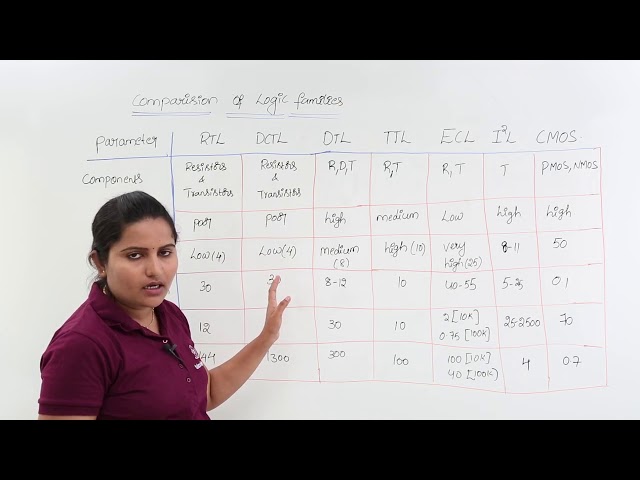 Comparision of Logic families
Parameter RTL DCTL DTL TTL ECL I²L CMOS
Components Resistors & Transistors Resistors & Transistors R,D,T R,T R,T T PMOS, NMOS
poor poor high medium Low high high
Low (4) Low (4) medium (8) high (10) very high (25) 8-11 50
30 8-12 10 40-55 5-25 0.1
12 30 10 2 [10K] 0.75 [100K] 25-2500 70
144 300 300 100 100 [10K] 40 [100K] 4 0.7